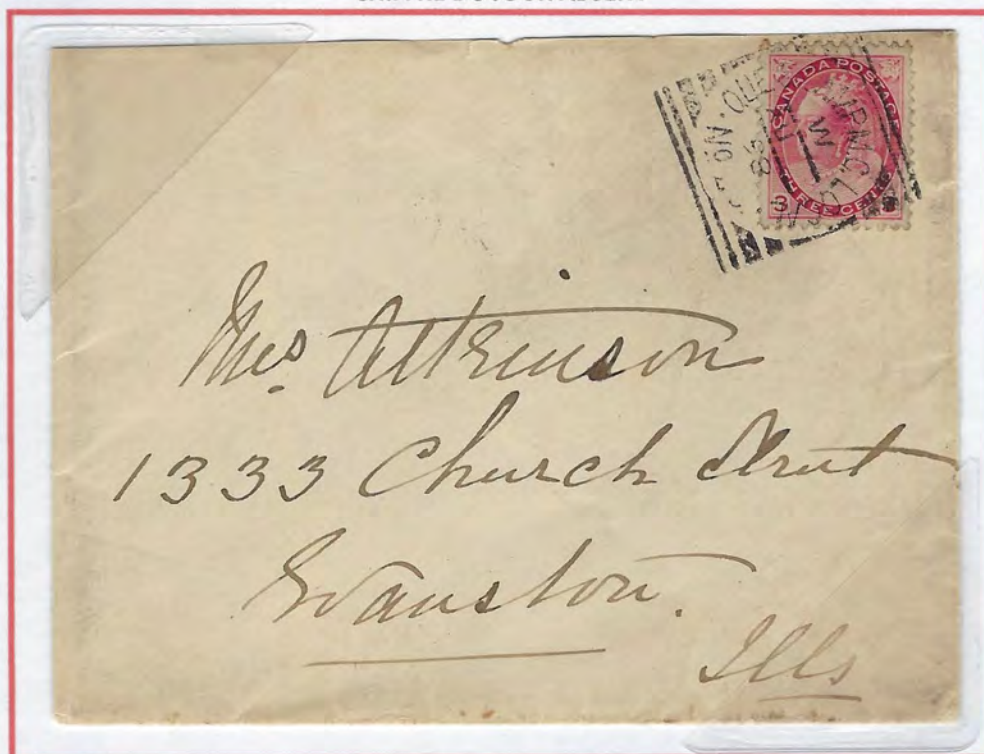 CANADA POSTAGE
THREE CENTS
3
QUE
98
Mrs. Atkinson
1333 Church Street
Evanston.
Ills